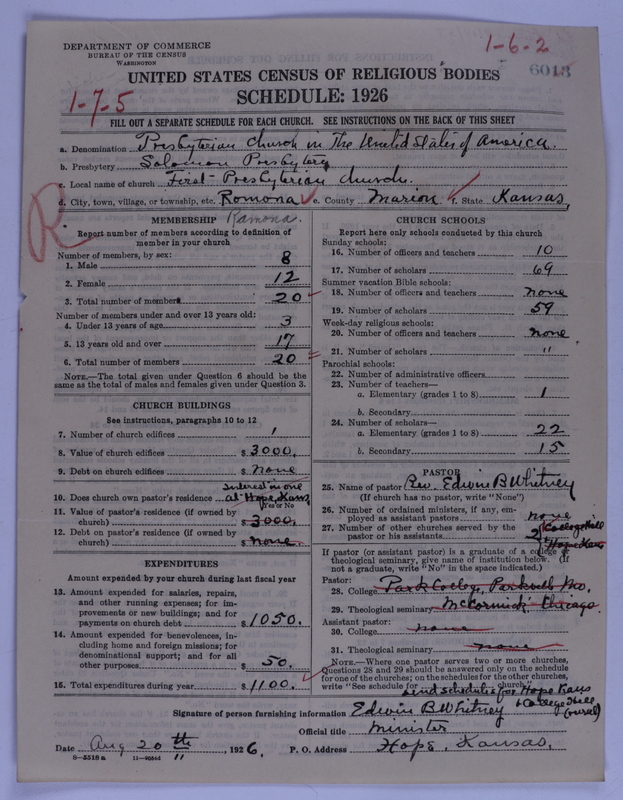 DEPARTMENT OF COMMERCE
BUREAU OF THE CENSUS
WASHINGTON
1-6-2
6013
UNITED STATES CENSUS OF RELIGIOUS BODIES
1-7-5
SCHEDULE: 1926
FILL OUT A SEPARATE SCHEDULE FOR EACH CHURCH. SEE INSTRUCTIONS ON THE BACK OF THIS SHEET
a. Denomination Presbyterian Church in The United States of America.
b. Presbytery Solomon Presbytery
c. Local name of church First Presbyterian Church.
d. City, town, village, or township, etc. Romona e. County Marion f. State Kansas,
R
MEMBERSHIP Ramona.
Report number of members according to definition of
member in your church
Number of members, by sex:
1. Male 8
2. Female 12
3. Total number of members 20
Number of members under and over 13 years old:
4. Under 13 years of age 3
5. 13 years old and over 17
6. Total number of members 20
NOTE.—The total given under Question 6 should be the
same as the total of males and females given under Question 3.
CHURCH BUILDINGS
See instructions, paragraphs 10 to 12
7. Number of church edifices 1
8. Value of church edifices $3000.
9. Debt on church edifices $ none
interest in one
10. Does church own pastor's residence at Hope, Kans
Yes or No
11. Value of pastor's residence (if owned by
church) $3000.
12. Debt on pastor's residence (if owned by
church) $ none.
EXPENDITURES
Amount expended by your church during last fiscal year
13. Amount expended for salaries, repairs,
and other running expenses; for im-
provements or new buildings; and for
payments on church debt $1050.
14. Amount expended for benevolences, in-
cluding home and foreign missions; for
denominational support; and for all
other purposes $50.
15. Total expenditures during year $1100.
CHURCH SCHOOLS
Report here only schools conducted by this church
Sunday schools:
16. Number of officers and teachers 10
17. Number of scholars 69
Summer vacation Bible schools:
18. Number of officers and teachers none
19. Number of scholars 59
Week-day religious schools:
20. Number of officers and teachers none
21. Number of scholars "
Parochial schools:
22. Number of administrative officers
23. Number of teachers—
a. Elementary (grades 1 to 8) 1
b. Secondary
24. Number of scholars—
a. Elementary (grades 1 to 8) 22
b. Secondary 15
PASTOR
25. Name of pastor Rev. Edwin B Whitney
(If church has no pastor, write "None")
26. Number of ordained ministers, if any, em-
ployed as assistant pastors none
27. Number of other churches served by the College Hill
pastor or his assistants 2 Hope Kans
If pastor (or assistant pastor) is a graduate of a college or
theological seminary, give name of institution below. (If
not a graduate, write "No" in the space indicated.)
Pastor:
28. College Park College, Parkville Mo.
29. Theological seminary McCormick Chicago.
Assistant pastor:
30. College none
31. Theological seminary none
NOTE.—Where one pastor serves two or more churches,
Questions 28 and 29 should be answered only on the schedule
for one of the churches; on the schedules for the other churches,
write "See schedule for church"
send schedules for Hope Kans
+ College Hill
(rural)
Signature of person furnishing information Edwin B Whitney
Official title Minister
Date Aug 20th, 1926. P. O. Address Hope, Kansas,
8-5518a 11-90865